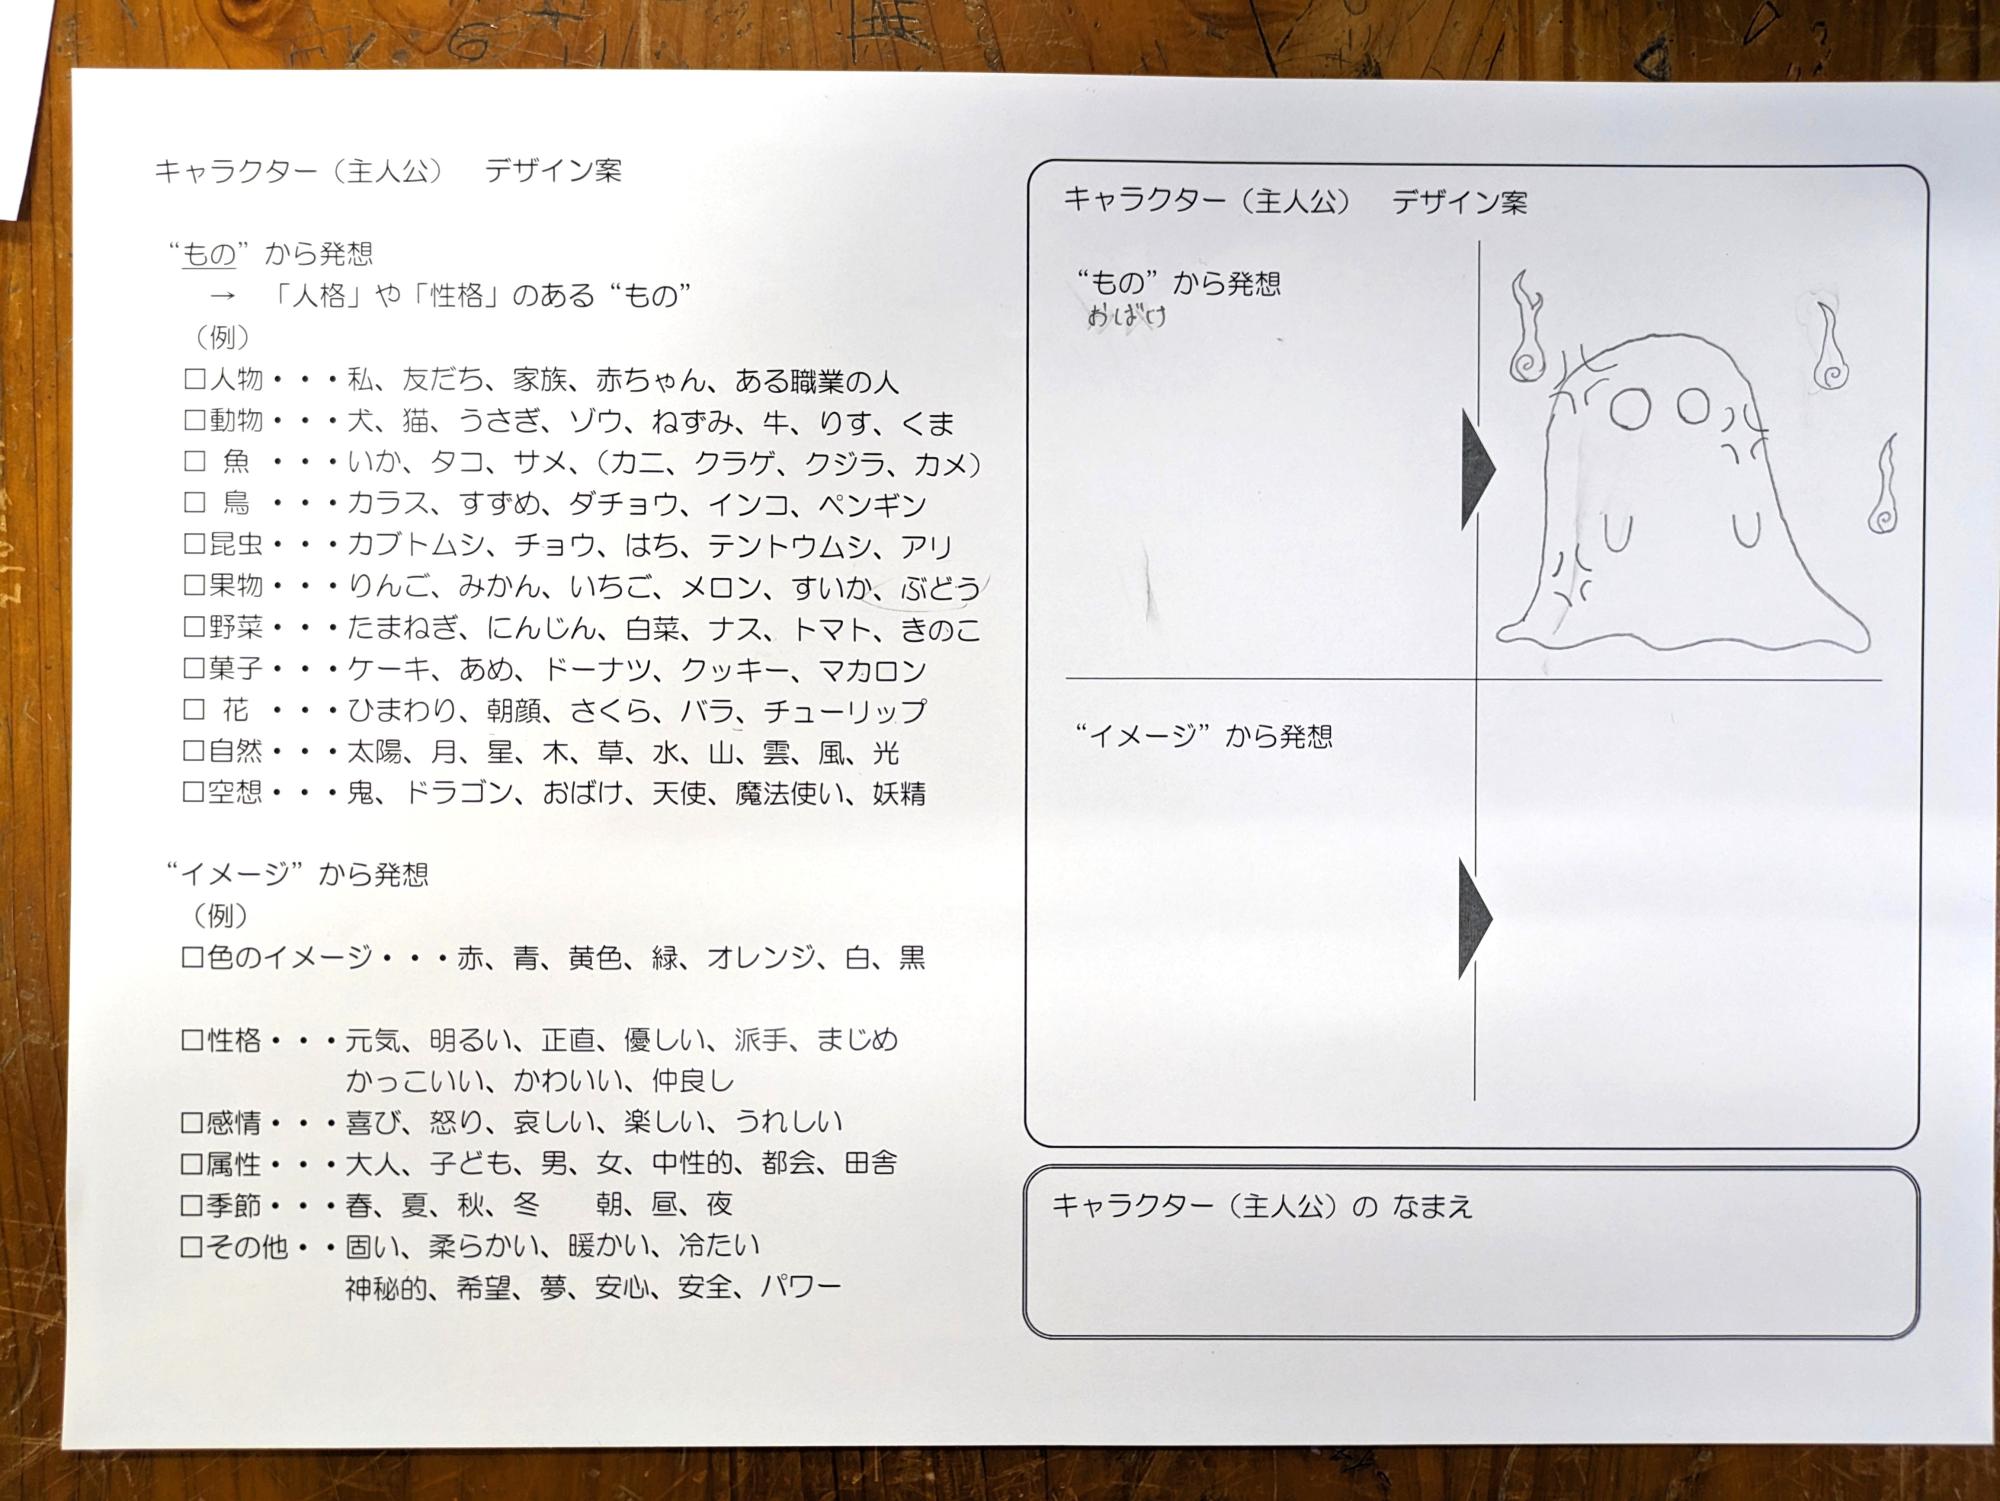 キャラクター（主人公）　デザイン案
“もの” から発想
→　「人格」や「性格」のある “もの”
（例）
□人物・・・私、友だち、家族、赤ちゃん、ある職業の人
□動物・・・犬、猫、うさぎ、ゾウ、ねずみ、牛、りす、くま
□ 魚 ・・・いか、タコ、サメ、（カニ、クラゲ、クジラ、カメ）
□ 鳥 ・・・カラス、すずめ、ダチョウ、インコ、ペンギン
□昆虫・・・カブトムシ、チョウ、はち、テントウムシ、アリ
□果物・・・りんご、みかん、いちご、メロン、すいか、ぶどう
□野菜・・・たまねぎ、にんじん、白菜、ナス、トマト、きのこ
□菓子・・・ケーキ、あめ、ドーナツ、クッキー、マカロン
□ 花 ・・・ひまわり、朝顔、さくら、バラ、チューリップ
□自然・・・太陽、月、星、木、草、水、山、雲、風、光
□空想・・・鬼、ドラゴン、おばけ、天使、魔法使い、妖精
“イメージ” から発想
（例）
□色のイメージ・・・赤、青、黄色、緑、オレンジ、白、黒
□性格・・・元気、明るい、正直、優しい、派手、まじめ
かっこいい、かわいい、仲良し
□感情・・・喜び、怒り、哀しい、楽しい、うれしい
□属性・・・大人、子ども、男、女、中性的、都会、田舎
□季節・・・春、夏、秋、冬　　朝、昼、夜
□その他・・固い、柔らかい、暖かい、冷たい
神秘的、希望、夢、安心、安全、パワー
キャラクター（主人公）　デザイン案
“もの” から発想
おばけ
“イメージ” から発想
キャラクター（主人公）の なまえ